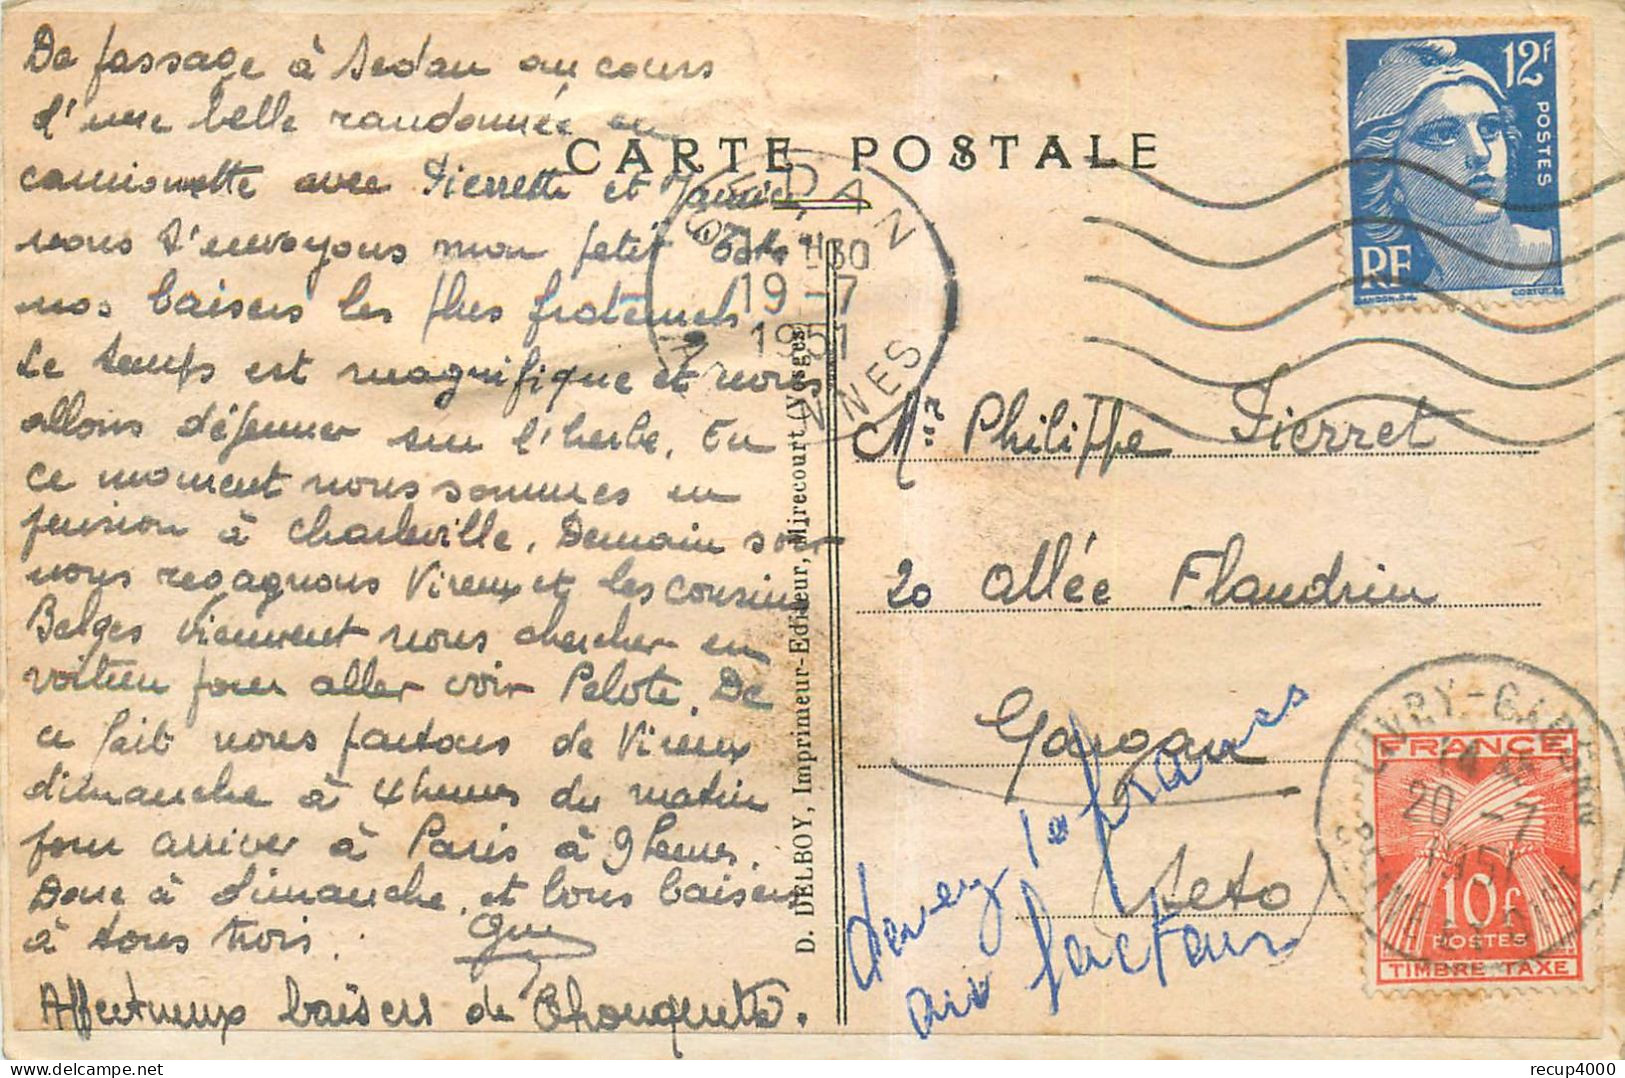 De passage à Sedan au cours
d'une belle randonnée en
camionette avec Pierrette et
nous t'envoyons mon petit
nos baisers les plus fraternels
Le temps est magnifique et nous
allons déjeuner sur l'herbe. En
ce moment nous sommes en
pension à Charleville. Demain soir
nous regagnons Vireux et les cousins
Belges viennent nous chercher en
voiture pour aller voir Pelote. De
ce fait nous partons de Vireux
dimanche à 4 heures du matin
pour arriver à Paris à 9 heures.
Donc à dimanche, et bons baisers
à tous trois.
Affectueux baisers de Chouquette.
CARTE POSTALE
SEDAN
19-7
1951
ARDENNES
D. DELBOY, Imprimeur-Editeur, Mirecourt (Vosges)
12F
POSTES
RF
GANDON.DEL
CORTOT.SC
Mr Philippe Pierret
20 allée Flandrin
Gargan
Seto
devez 10 francs
au facteur
LIVRY-GARGAN
20-7
1951
SEINE ET OISE
FRANCE
10F
POSTES
TIMBRE TAXE
recup4000